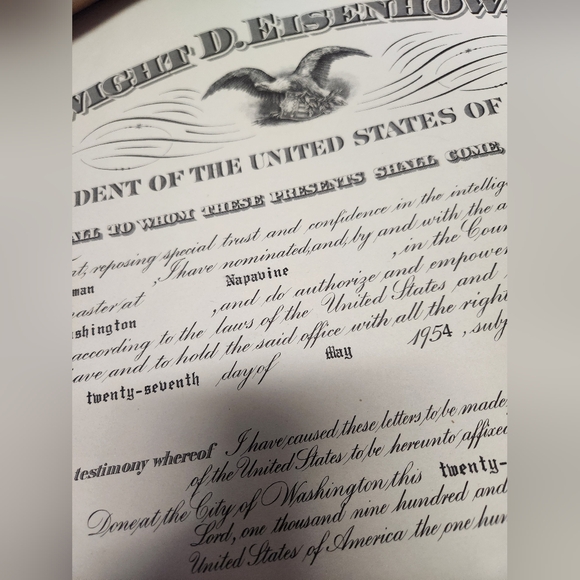 WIGHT D. EISENHOW
DENT OF THE UNITED STATES OF
ALL TO WHOM THESE PRESENTS SHALL COME,
at, reposing special trust and confidence in the intellig
man , I have nominated, and, by and with the a
master at Napavine , in the Coun
shington , and do authorize and empower
according to the laws of the United States and
ave and to hold the said office with all the right
twenty-seventh day of May 1954, subj
testimony whereof I have caused these letters to be made
of the United States to be hereunto affixed
Done at the City of Washington this twenty-
Lord, one thousand nine hundred and
United States of America the one hun